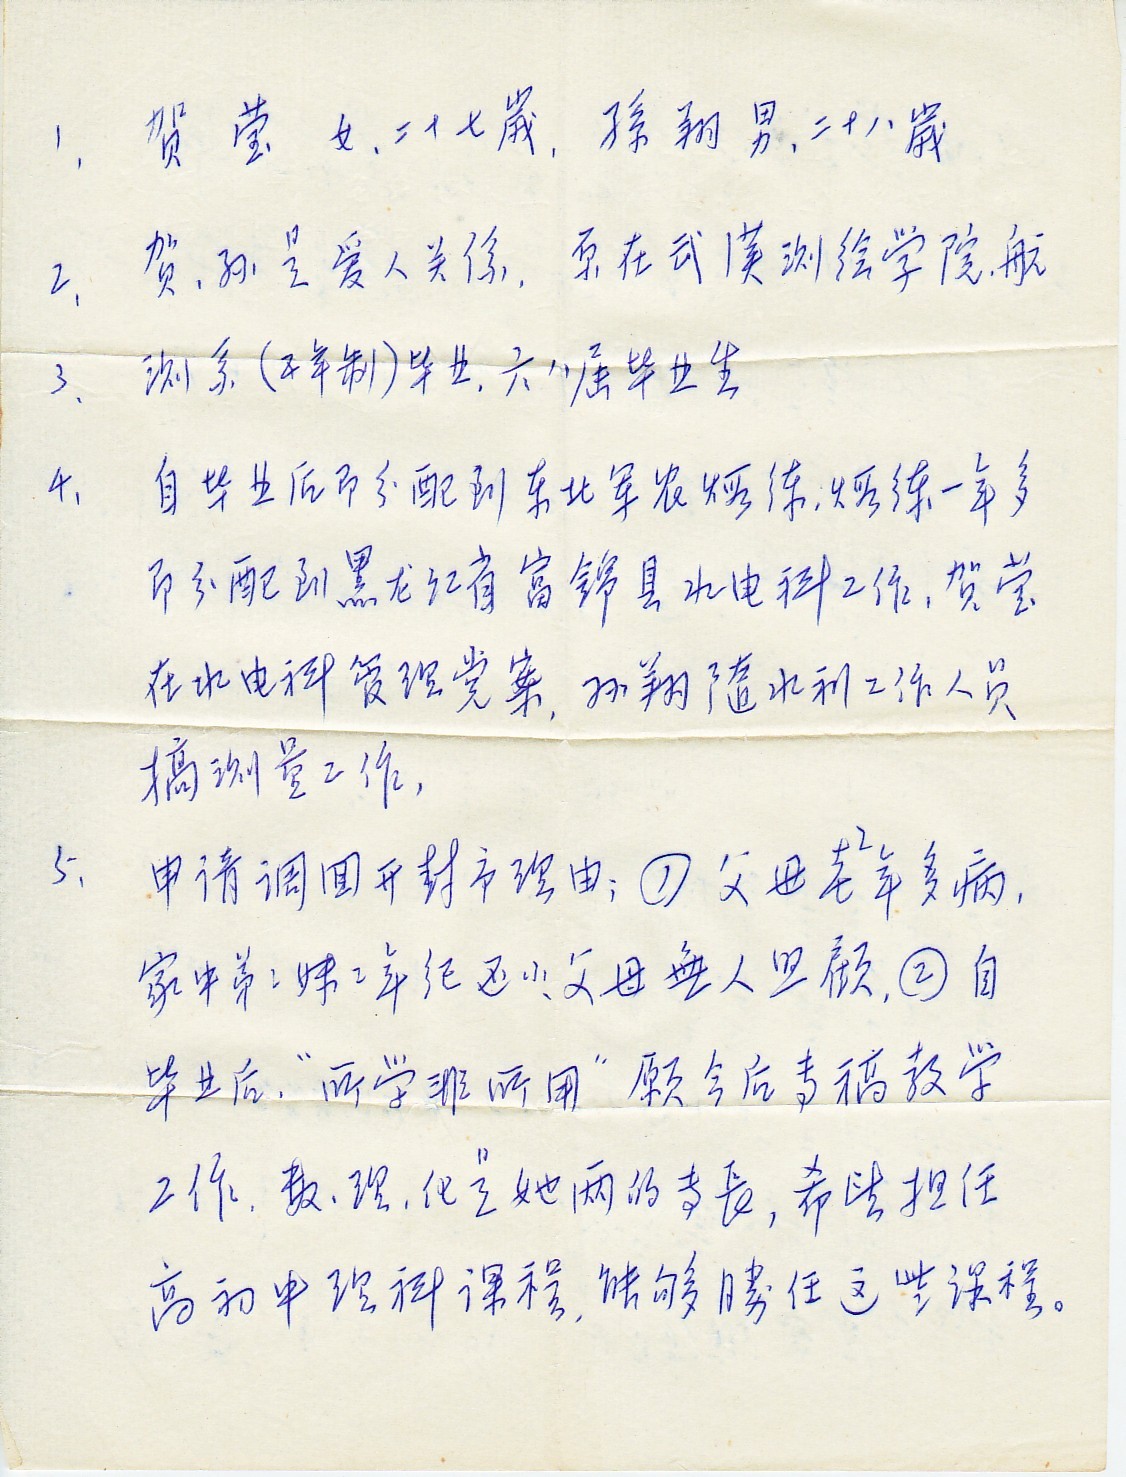 1、 贺莹 女、二十七歲, 孫翔 男、二十八歲
2、 贺、孙是爱人关係, 原在武漢测绘学院、航
3、 测系(五年制)毕业、六八届毕业生
4、 自毕业后即分配到东北军农煅练,煅练一年多
即分配到黑龙江省富錦县水电科工作,贺莹
在水电科管理党案,孙翔隨水利工作人员
搞测量工作,
5、 申请调回开封市理由; ① 父母老年多病,
家中弟〻妹〻年纪还小、父母無人照顧, ② 自
毕业后,“所学非所用”願今后专搞教学
工作,数、理、化是她两的专長,希望担任
高初中理科课程,能够勝任这些课程。